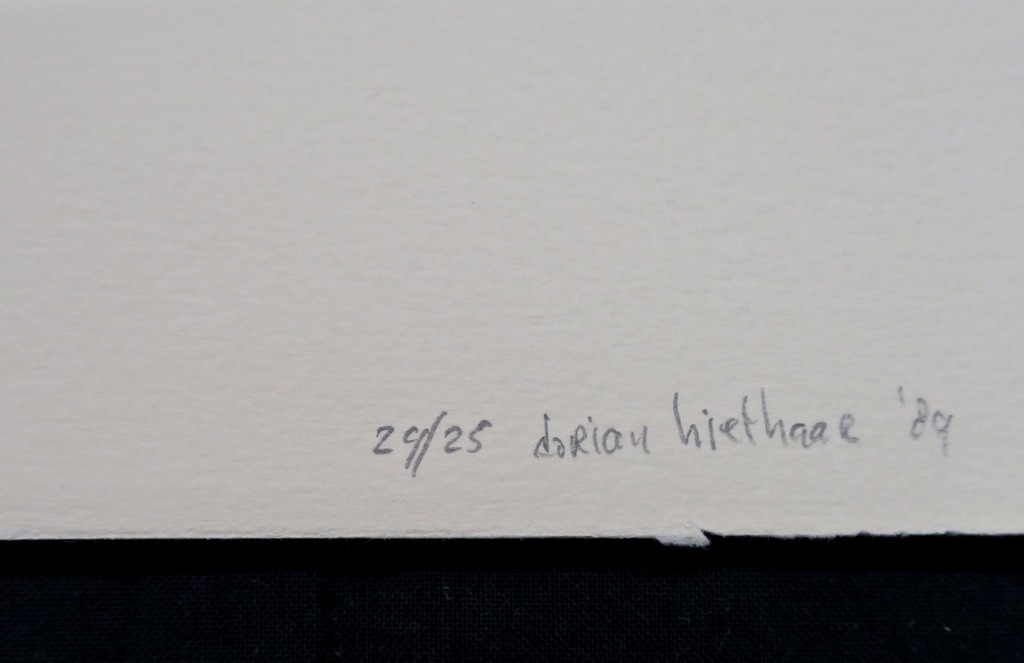 29/25 dorian hiethaar '89